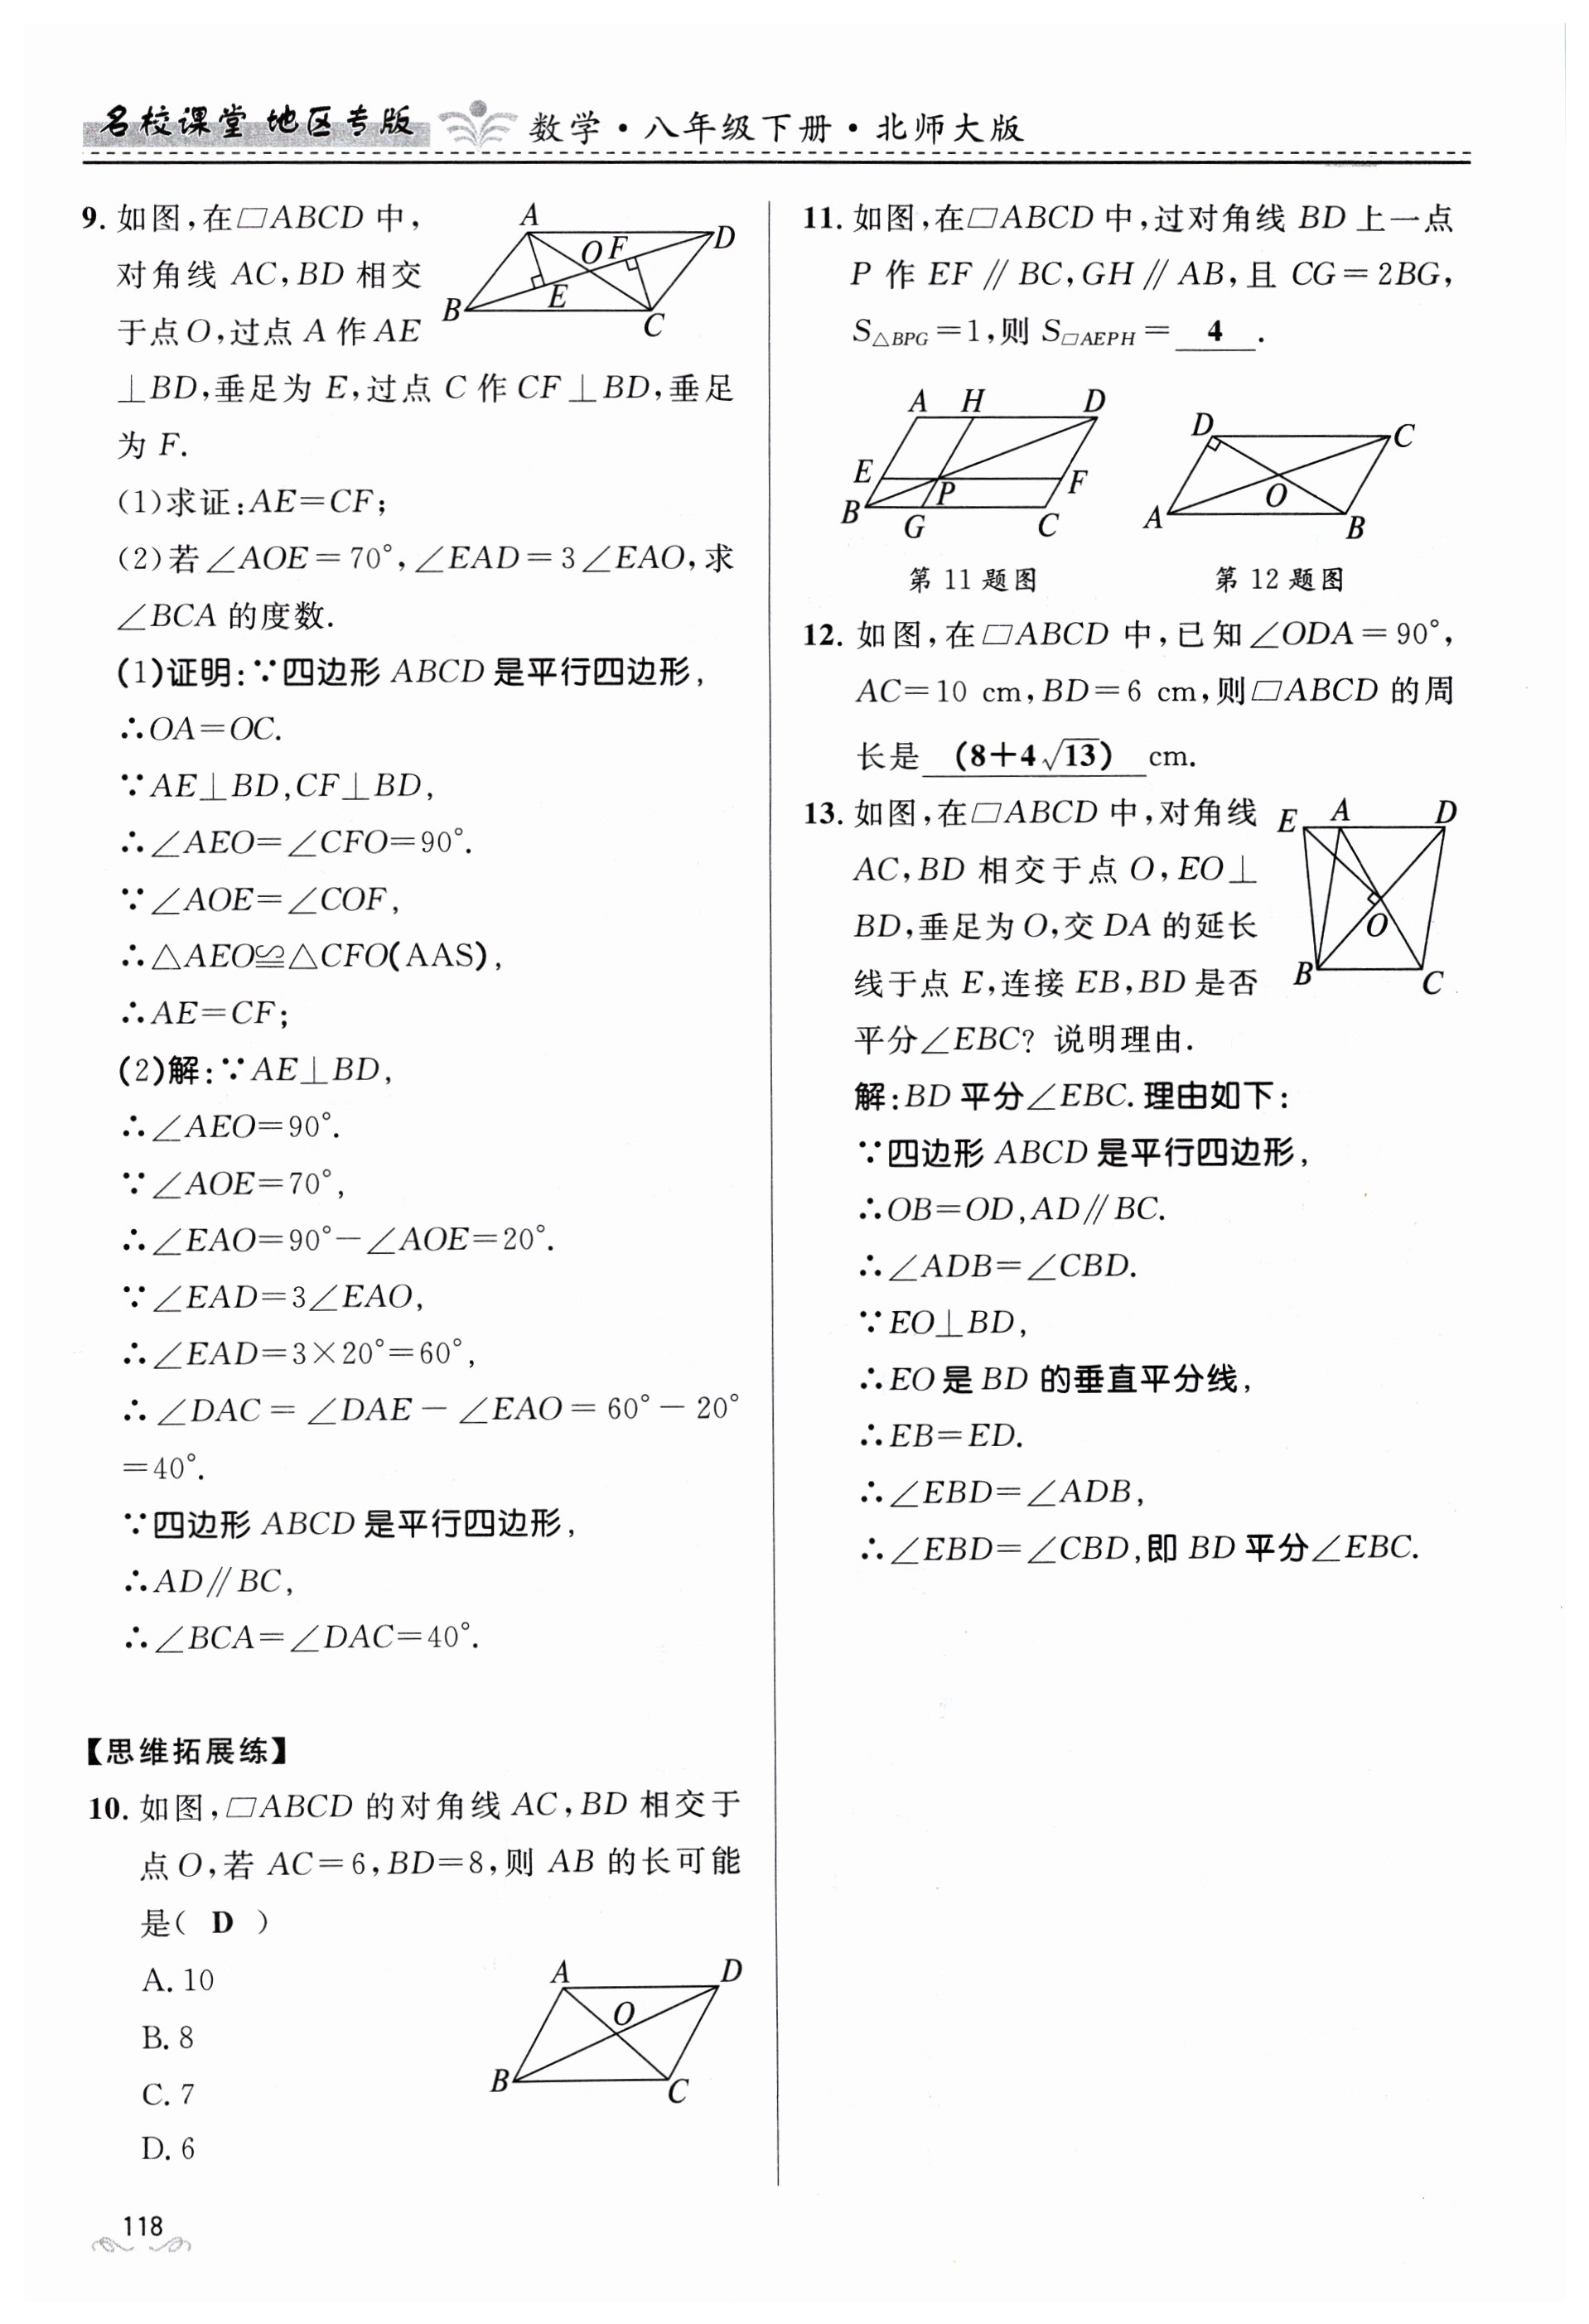 名校课堂 地区专版 数学·八年级下册·北师大版
9. 如图,在▱ABCD 中,
对角线 AC,BD 相交
于点O,过点 A 作 AE
⊥BD,垂足为 E,过点 C 作 CF⊥BD,垂足
为 F.
(1)求证:AE=CF;
(2)若∠AOE=70°,∠EAD=3∠EAO,求
∠BCA 的度数.
A
D
O F
E
B
C
(1)证明:∵四边形 ABCD 是平行四边形,
∴OA=OC.
∵AE⊥BD,CF⊥BD,
∴∠AEO=∠CFO=90°.
∵∠AOE=∠COF,
∴△AEO≌△CFO(AAS),
∴AE=CF;
(2)解:∵AE⊥BD,
∴∠AEO=90°.
∵∠AOE=70°,
∴∠EAO=90°−∠AOE=20°.
∵∠EAD=3∠EAO,
∴∠EAD=3×20°=60°,
∴∠DAC=∠DAE−∠EAO=60°−20°
=40°.
∵四边形 ABCD 是平行四边形,
∴AD∥BC,
∴∠BCA=∠DAC=40°.
【思维拓展练】
10. 如图,▱ABCD 的对角线 AC,BD 相交于
点O,若 AC=6,BD=8,则 AB 的长可能
是( D )
A. 10
B. 8
C. 7
D. 6
A
D
O
B
C
118
11. 如图,在▱ABCD 中,过对角线 BD 上一点
P 作 EF∥BC,GH∥AB,且 CG=2BG,
S△BPG=1,则 S▱AEPH= 4 .
A H D
E
P
F
B
G
C
第 11 题图
D
C
O
A
B
第 12 题图
12. 如图,在▱ABCD 中,已知∠ODA=90°,
AC=10 cm,BD=6 cm,则▱ABCD 的周
长是 (8+4√13) cm.
13. 如图,在▱ABCD 中,对角线
AC,BD 相交于点 O,EO⊥
BD,垂足为O,交 DA 的延长
线于点 E,连接 EB,BD 是否
平分∠EBC? 说明理由.
E A D
O
B
C
解:BD 平分∠EBC. 理由如下:
∵四边形 ABCD 是平行四边形,
∴OB=OD,AD∥BC.
∴∠ADB=∠CBD.
∵EO⊥BD,
∴EO 是 BD 的垂直平分线,
∴EB=ED.
∴∠EBD=∠ADB,
∴∠EBD=∠CBD,即 BD 平分∠EBC.